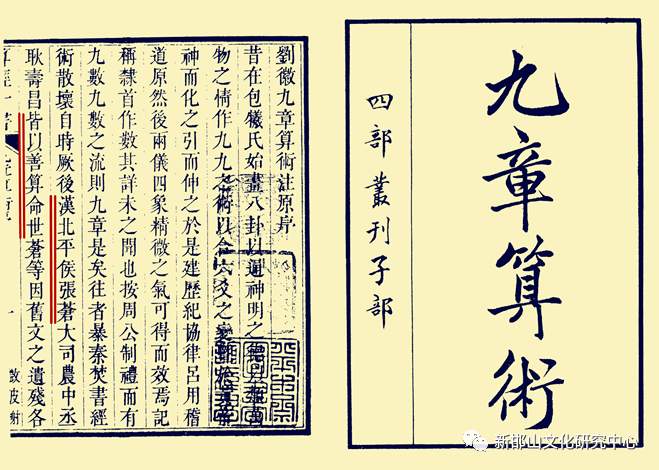 九章算術
四部叢刊子部
劉徽九章算術注原序
昔在包犧氏始畫八卦以通神明之德以類萬
物之情作九九之術以合六爻之變
神而化之引而伸之於是建歷紀協律呂用稽
道原然後兩儀四象精微之氣可得而效焉記
稱隸首作數其詳未之聞也按周公制禮而有
九數九數之流則九章是矣往者暴秦焚書經
術散壞自時厥後漢北平侯張蒼大司農中丞
耿壽昌皆以善算命世蒼等因舊文之遺殘各
一
新邙山文化研究中心